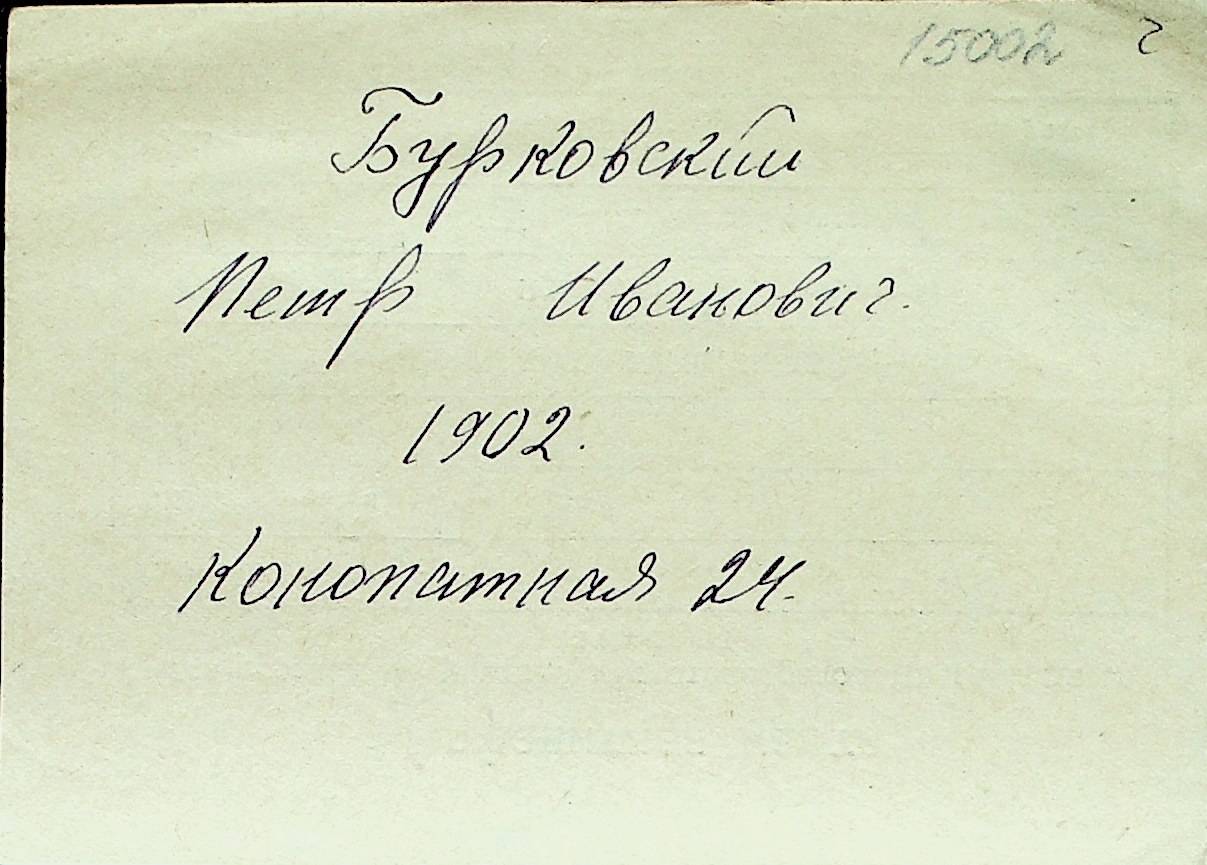 15002 2
Бурковский
Петр Иванович.
1902.
Конопатная 24.